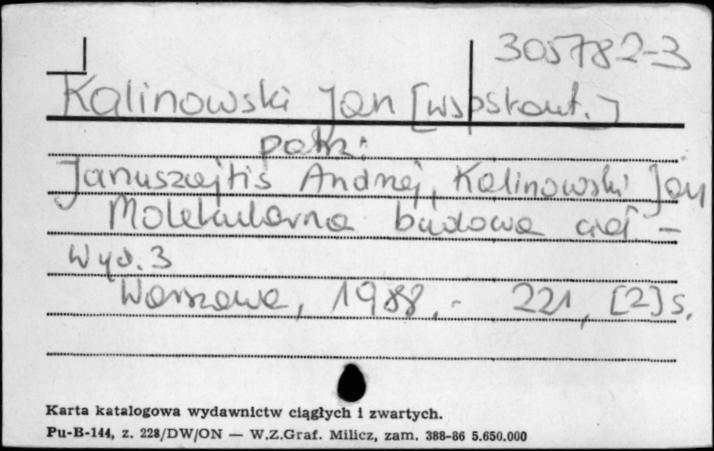 305782-3
Kalinowski Jan [wspkaut.]
patrz:
Januszajtis Andrzej, Kalinowski Jan
Molekularna budowa ciał. -
Wyd. 3
Warszawa, 1988. - 221, [2] s.
Karta katalogowa wydawnictw ciągłych i zwartych.
Pu-B-144, z. 228/DW/ON — W.Z.Graf. Milicz, zam. 388-86 5.650.000